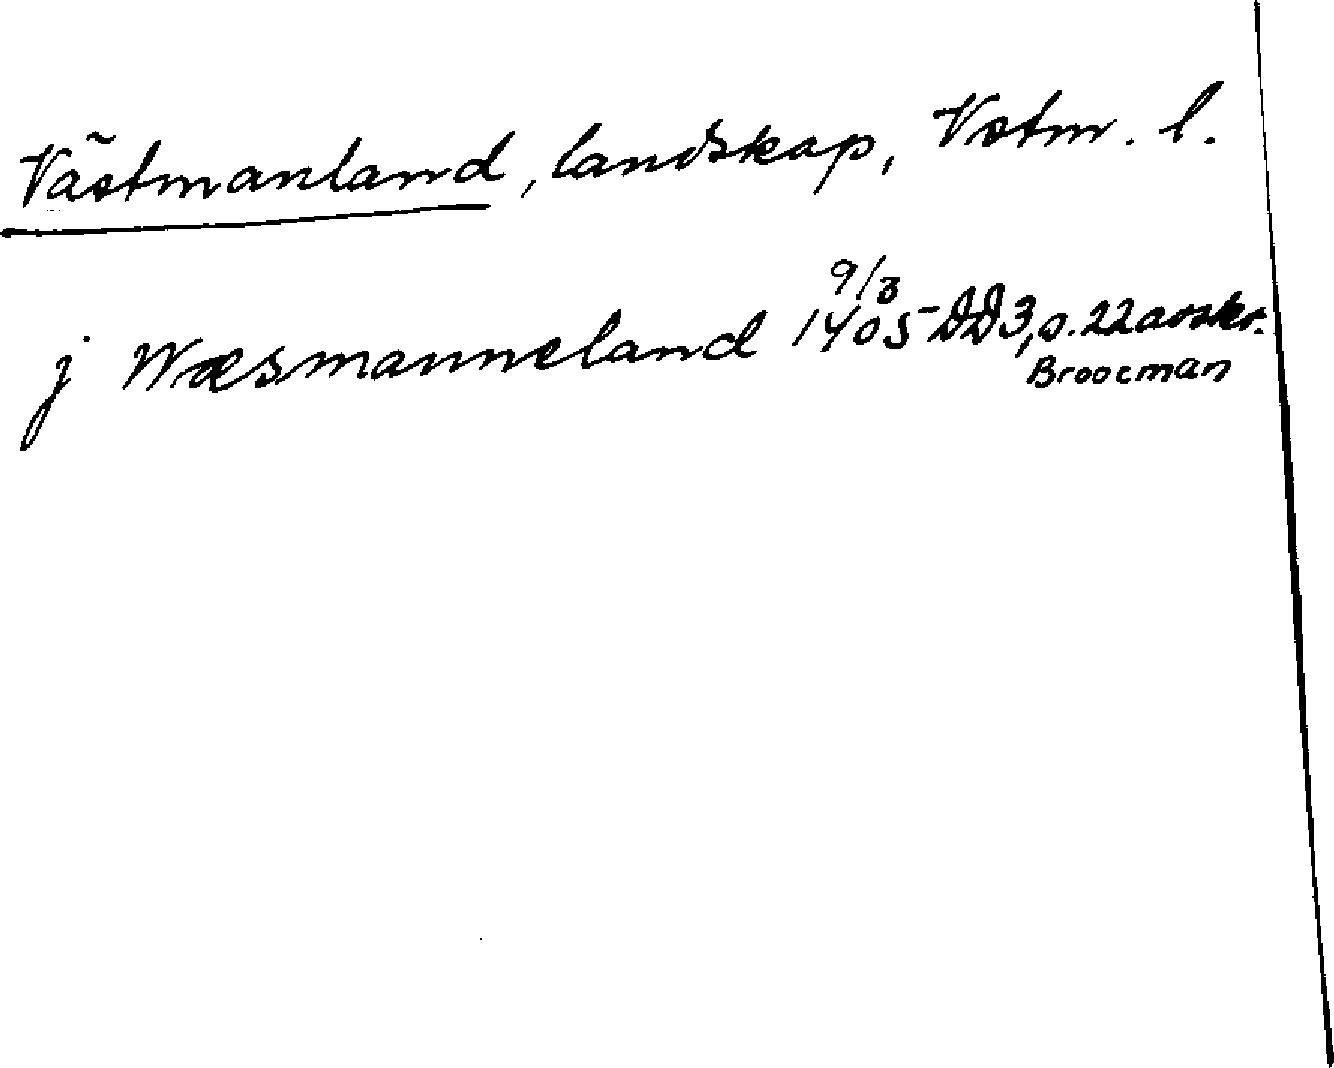 Västmanland, landskap, Vstm. l.
j Wæsmanneland 9/3 1405 DD3, s. 22 avskr.
Broocman